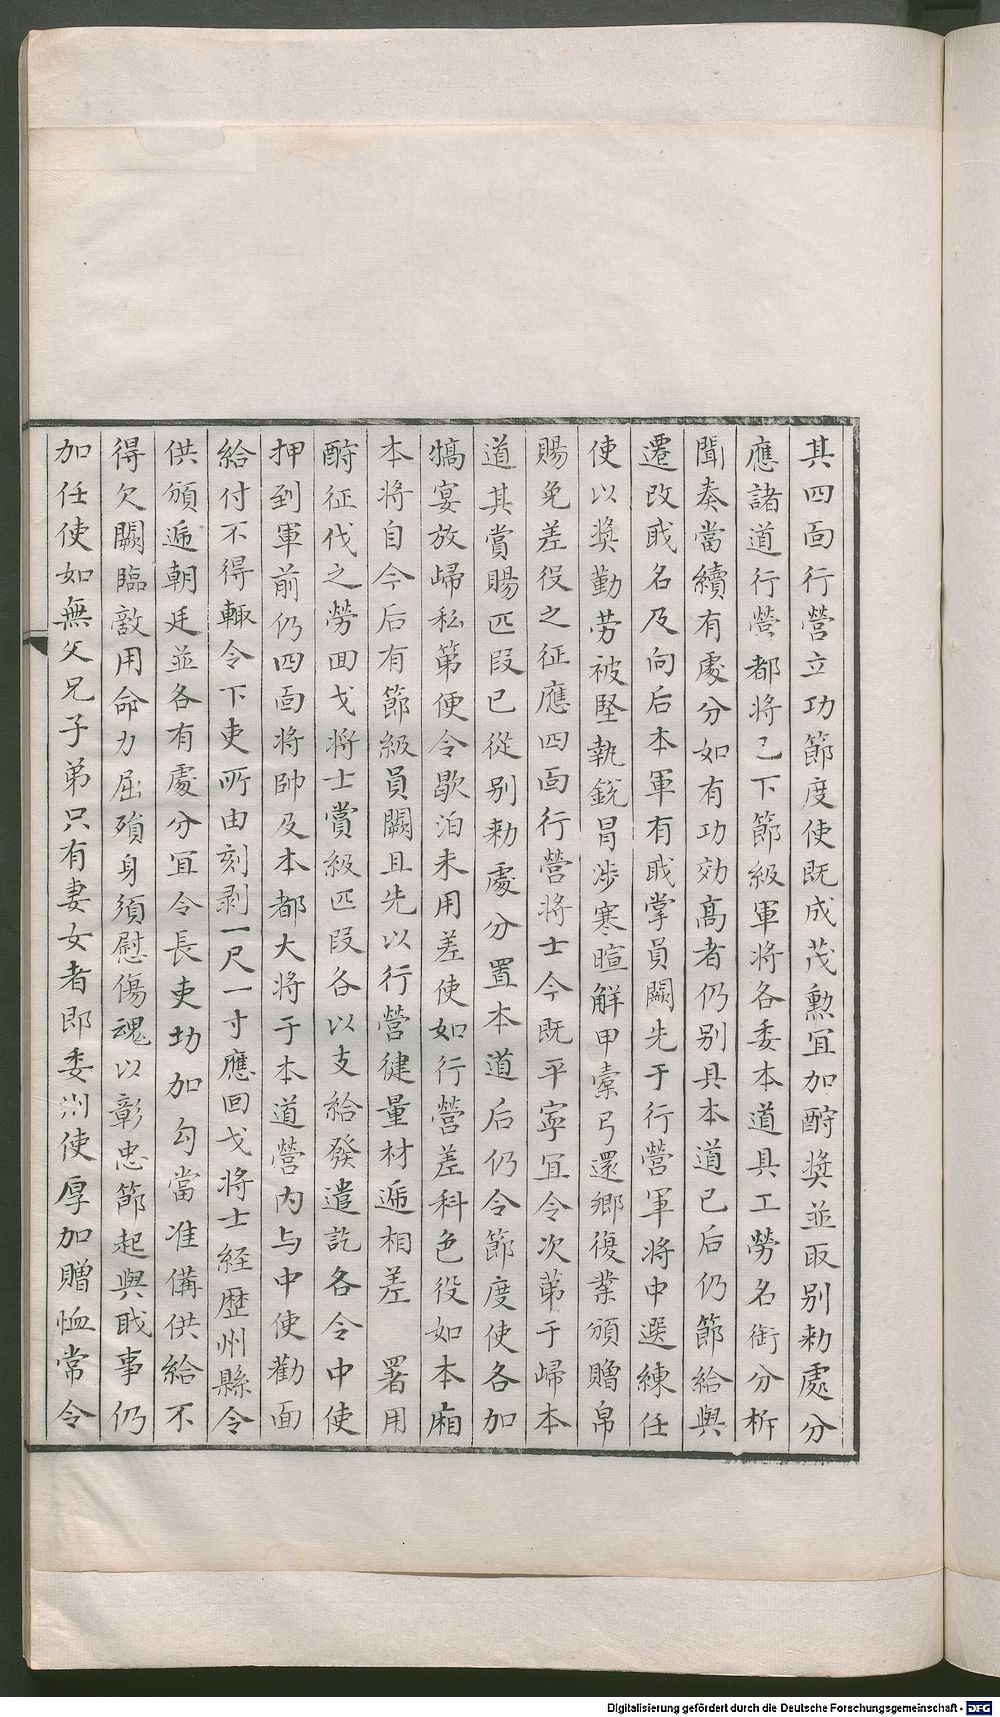 其四面行營立功節度使既成茂勲宜加酧奬並取别勑處分
應諸道行營都將已下節級軍將各委本道具工勞名銜分析
聞奏當續有處分如有功効髙者仍别具本道已后仍節給與
遷改戝名及向后本軍有戝掌員闕先于行營軍將中選練任
使以奬勤劳被堅執銳冐涉寒暄觧甲櫜弓還鄉復業頒贈帛
賜免差役之征應四面行營将士今既平寧宜令次苐于歸本
道其賞賜匹叚已從别勑處分置本道后仍令節度使各加
犒宴放歸私第便令歇泊未用差使如行營差科色役如本廂
本将自今后有節級員闕且先以行營健量材遞相差 署用
酧征伐之勞囬戈将士賞級匹叚各以支給發遣訖各令中使
押到軍前仍四面将帥及本都大将于本道營内与中使勸面
給付不得輙令下吏所由刻剥一尺一寸應回戈将士経歴州縣令
供頒遞朝廷並各有處分宜令長吏切加勾當准俻供給不
得欠闕臨敵用命力屈殞身須慰傷魂以彰忠節起與戝事仍
加任使如無父兄子弟只有妻女者即委州使厚加贈恤常令
Digitalisierung gefördert durch die Deutsche Forschungsgemeinschaft - DFG